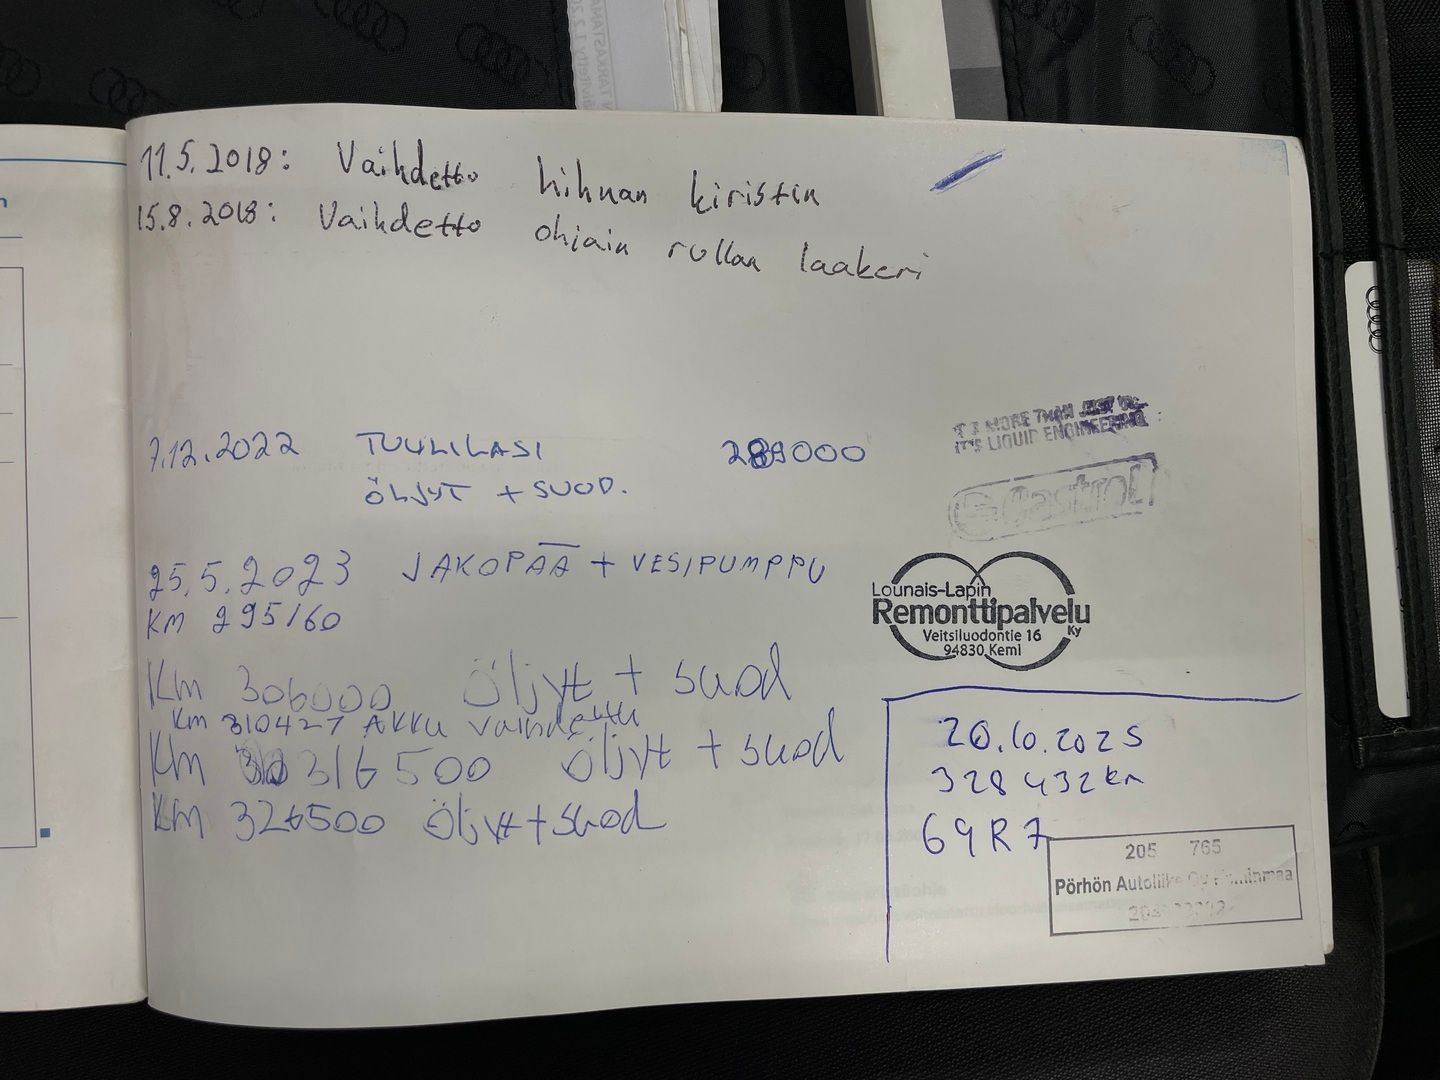 11.5.2018: Vaihdetto hihnan kiristin
15.8.2018: Vaihdetto ohjain rullan laakeri
7.12.2022 TUULILASI 289000
ÖLJYT + SUOD.
IT'S MORE THAN JUST OIL
IT'S LIQUID ENGINEERING
Castrol
25.5.2023 JAKOPÄÄ + VESIPUMPPU
KM 295160
Lounais-Lapin
Remonttipalvelu
Ky
Veitsiluodontie 16
94830 Kemi
KM 306000 Öljyt + suod
KM 310427 AKKU vaihdettu
KM 316500 Öljyt + suod
KM 326500 Öljyt + suod
20.10.2025
328432km
69R7
205 765
Pörhön Autoliike Oy